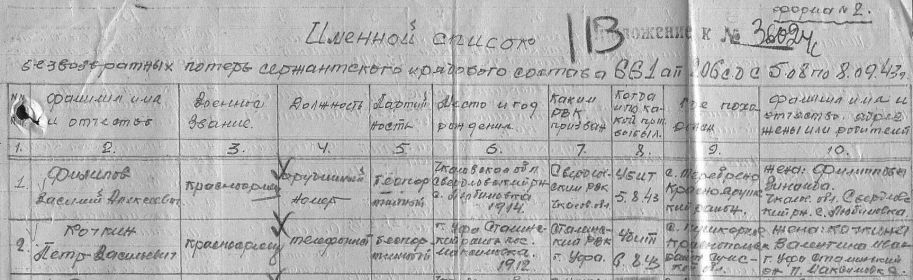 форма № 2.
Именной список
11В Приложение к № 36024с
безвозвратных потерь сержантского и рядового состава 661 ап 206 сд с 5.08 по 8.09.43 г.
фамилия имя и отчество
Военное звание.
Должность
Партий ность
Место и год рождения.
Каким РВК призван
Когда и по ка кой прич. выбыл.
Где похо ронен
фамилия имя и отчество. адрес жены или родителей
1. 2. 3. 4. 5. 6. 7. 8. 9. 10.
1. Василий Алексеевич
красноармеец
орудийный номер
беспар тийный
Чкаловская обл Свердловский р-н с. Любимовка 1914.
Свердлов ским РВК Чкалов. обл
Убит 5.8.43
Краснояруж кий район.
жена: Филиппова Зинаида. Чкал. обл. Свердлов ский р-н. с. Любимовка.
2. Кочкин Петр Васильевич
красноармеец
телефонист
беспар тийный
г. Уфа Сталинс кий район пос. Максимовка. 1912
Сталинс кий РВК г. Уфа.
Убит 6.8.43
Краснополь
жена: Кочкина Валентина Иван г. Уфа Сталинский р-н п. Максимовка